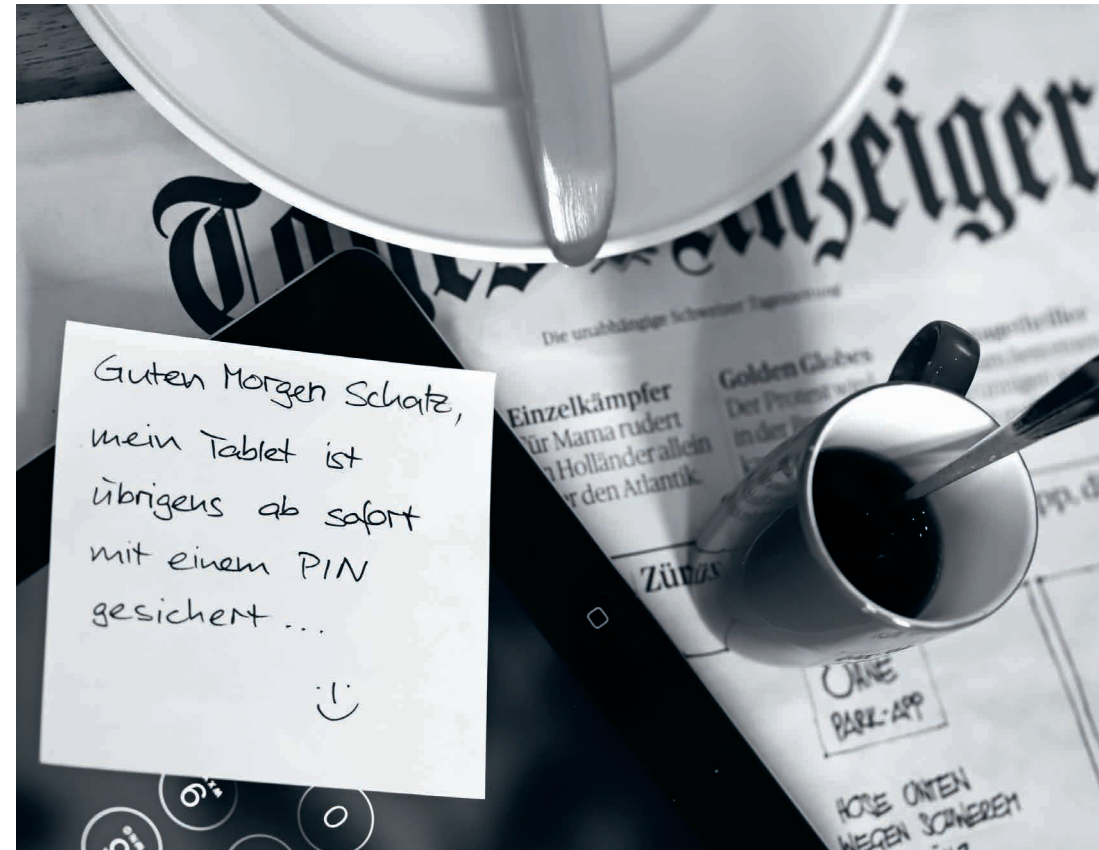 Tages Anzeiger
Die unabhängige Schweizer Tageszeitung
Einzelkämpfer
Für Mama rudert
Holländer allein
den Atlantik.
Golden Globes
Der Protest
in der
Guten Morgen Schatz,
mein Tablet ist
übrigens ab sofort
mit einem PIN
gesichert...
:)
OHNE
PARK-APP
HOSE UNTEN
WEGEN SCHWEREM
9
WXYZ
0